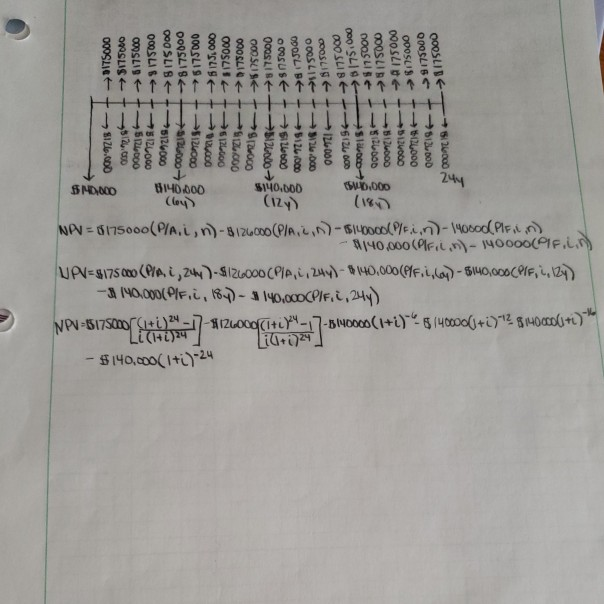 $175000 $175000 $175000 $175000 $175000 $175000 $175000 $175000 $175000 $175000 $175000 $175000 $175000 $175000 $175000 $175000 $175000 $175000 $175000 $175000 $175000 $175000 $175000
$126,000 $126,000 $126000 $126000 $126000 $126000 $126000 $126000 $126000 $126000 $126000 $126000 $126000 $126000 $126,000 126000 $126000 $126000 $126000 $126000 $126000 $126000 $126000
24y
$140,000 $140,000 $140,000 $140,000
(6y) (12y) (18y)
NPV=$175000(P/A,i,n)-$126000(P/A,i,n)-$140000(P/F,i,n)-140000(P/F,i,n)
-$140,000(P/F,i,n)-140000(P/F,i,n)
NPV=$175000(P/A,i,24y)-$126000(P/A,i,24y)-$140,000(P/F,i,6y)-$140,000(P/F,i,12y)
-$140,000(P/F,i,18y)-$140,000(P/F,i,24y)
NPV=$175000[(1+i)^24-1/i(1+i)^24]-$126000[(1+i)^24-1/i(1+i)^24]-$140000(1+i)^-6-$140000(1+i)^-12-$140000(1+i)^-18
-$140,000(1+i)^-24